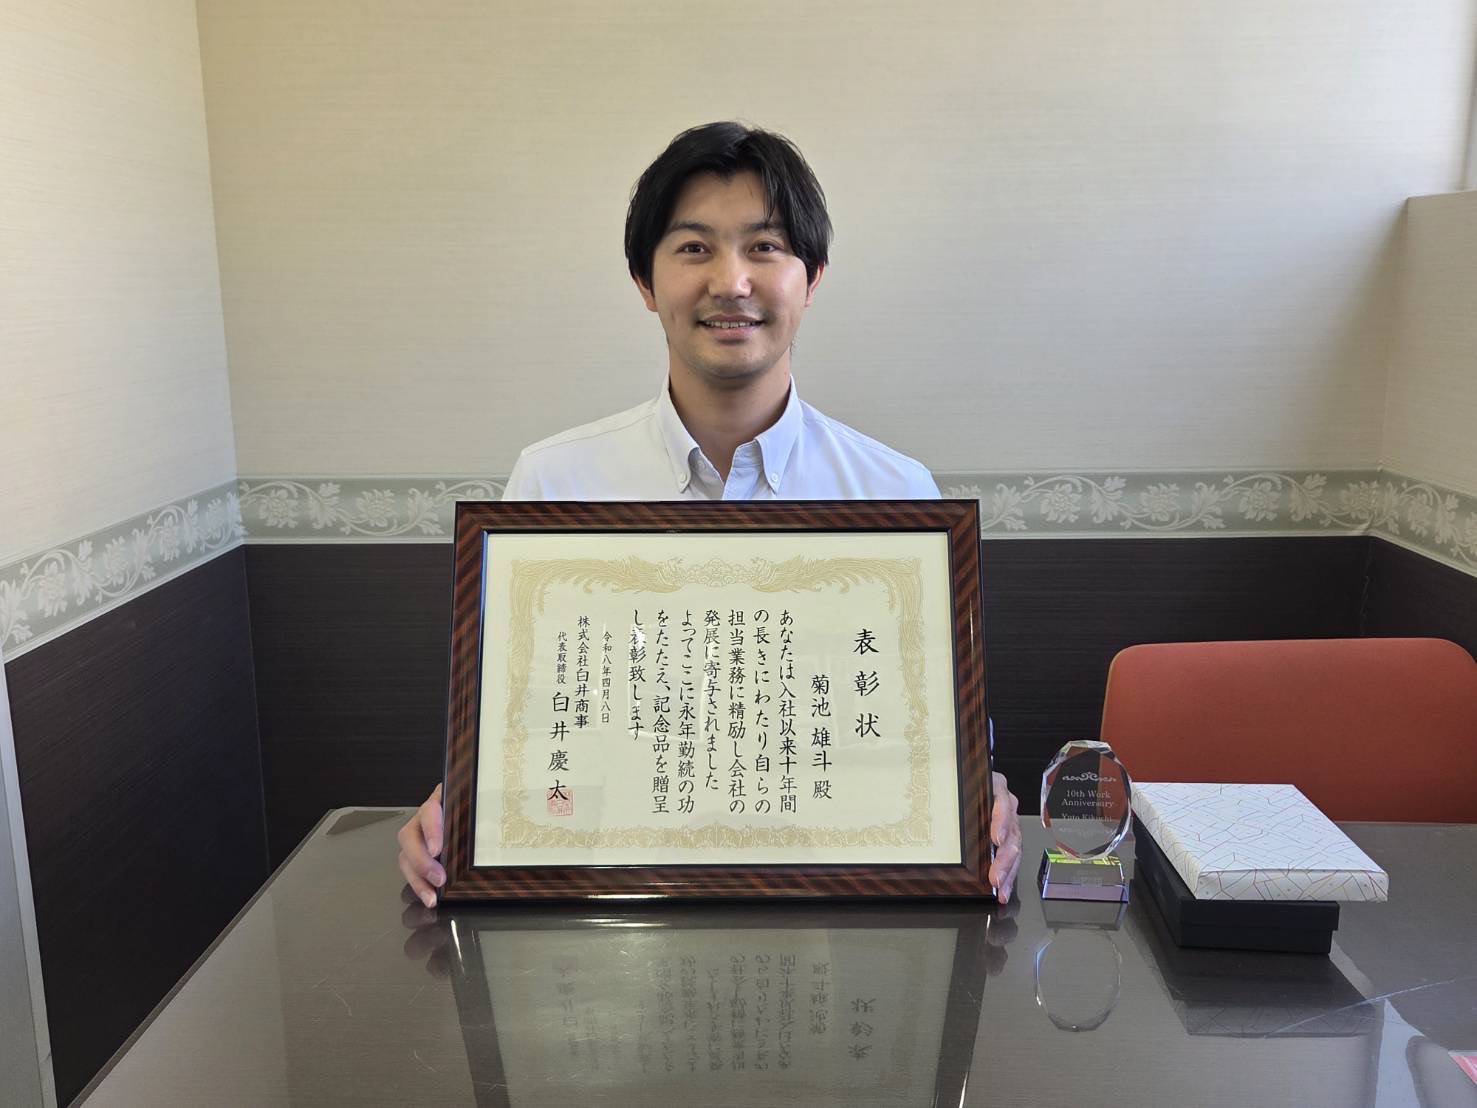 表彰状
菊池 雄斗 殿
あなたは入社以来十年間
の長きにわたり自らの
担当業務に精励し会社の
発展に寄与されました
よってここに永年勤続の功
をたたえ、記念品を贈呈
し表彰致します
令和八年四月八日
株式会社臼井商事
代表取締役 臼井慶太
10th Work
Anniversary
Yuto Kikuchi